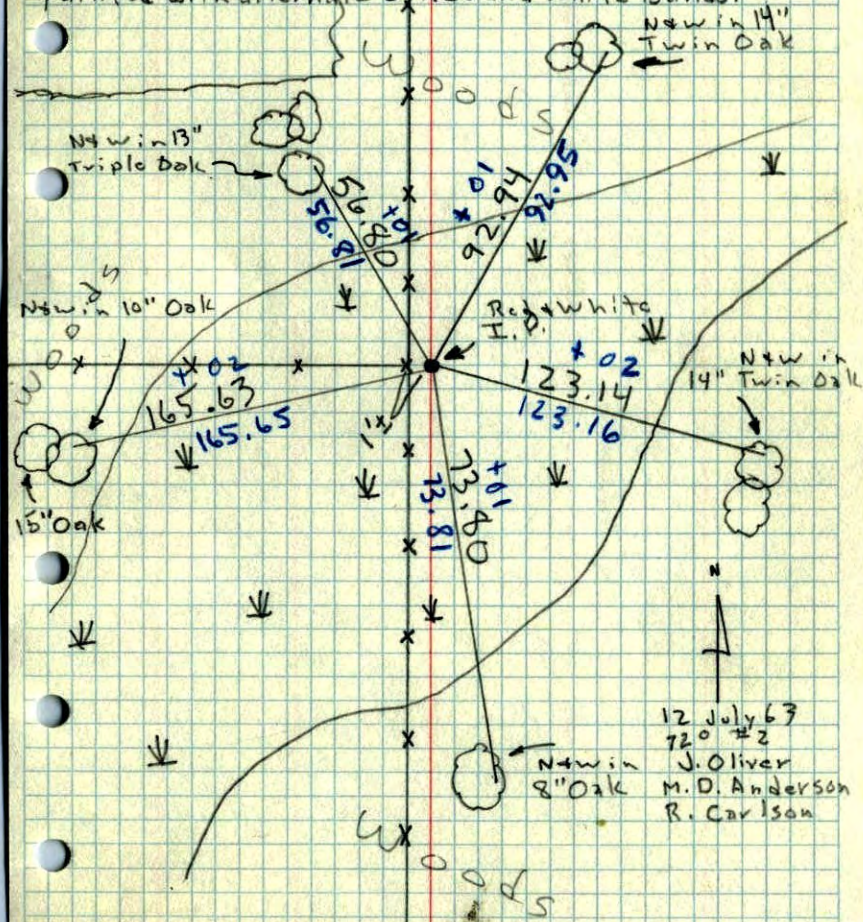 N&W in 14"
Twin Oak
Woods
N&W in 13"
Triple Oak
56.80
+01
56.81
92.94
+01
92.95
Woods
N&W in 10" Oak
Red & White
I.P.
+02
165.63
165.65
+02
123.14
123.16
N&W in
14" Twin Oak
1'±
15" Oak
73.80
+01
73.81
N
12 July 63
72° #2
J. Oliver
M.D. Anderson
R. Carlson
N&W in
8" Oak
Woods